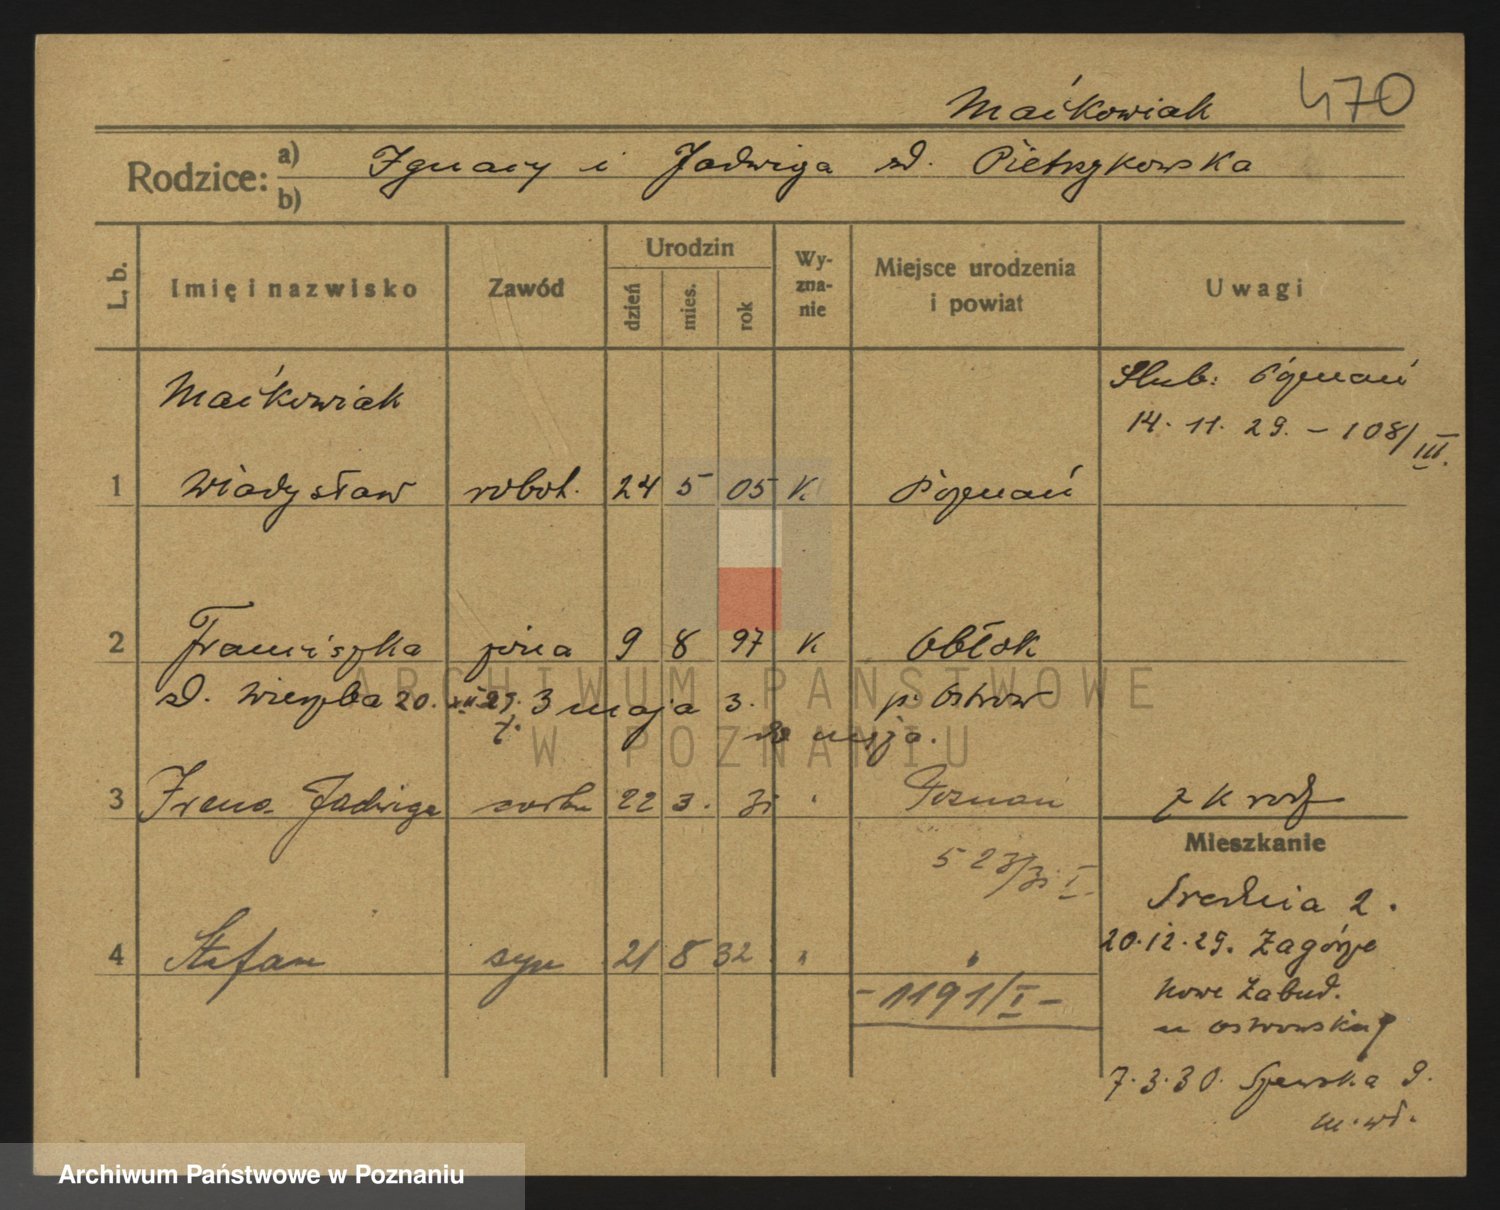 Maćkowiak 470
Rodzice: a) Ignacy i Jadwiga zd. Pietrzykowska
b)
L. b. Imię i nazwisko Zawód Urodzin dzień mies. rok Wy-zna-nie Miejsce urodzenia i powiat Uwagi
Maćkowiak Ślub: Poznań
14. 11. 29. – 108/III.
1 Władysław robot. 24 5 05 K. Poznań
2 Franciszka żona 9 8 97 K. Obłok
zd. Wierzba 20. XII 29. 3 maja 3. p. Ostrów
3 Irena Jadwiga córka 22 3. 31 " Poznań z K rodz
Mieszkanie
523/31 I.
Średnia 2.
4 Stefan syn 21 8 32 " "
20.12.29. Zagórze
– 1191/I –
nowe Zabud.
u Ostrowskiej
7.3.30. Szewska 9.
m. wł.
ARCHIWUM PAŃSTWOWE
W POZNANIU
Archiwum Państwowe w Poznaniu